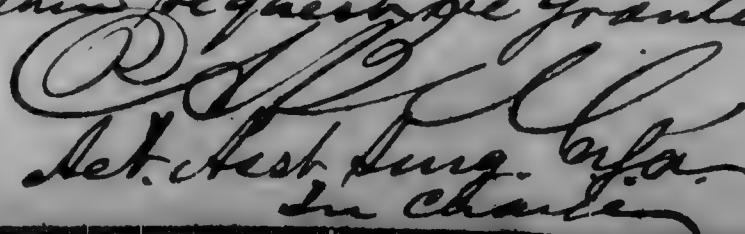 this request be granted
Act. Asst Surg. U.S.A.
In Charge